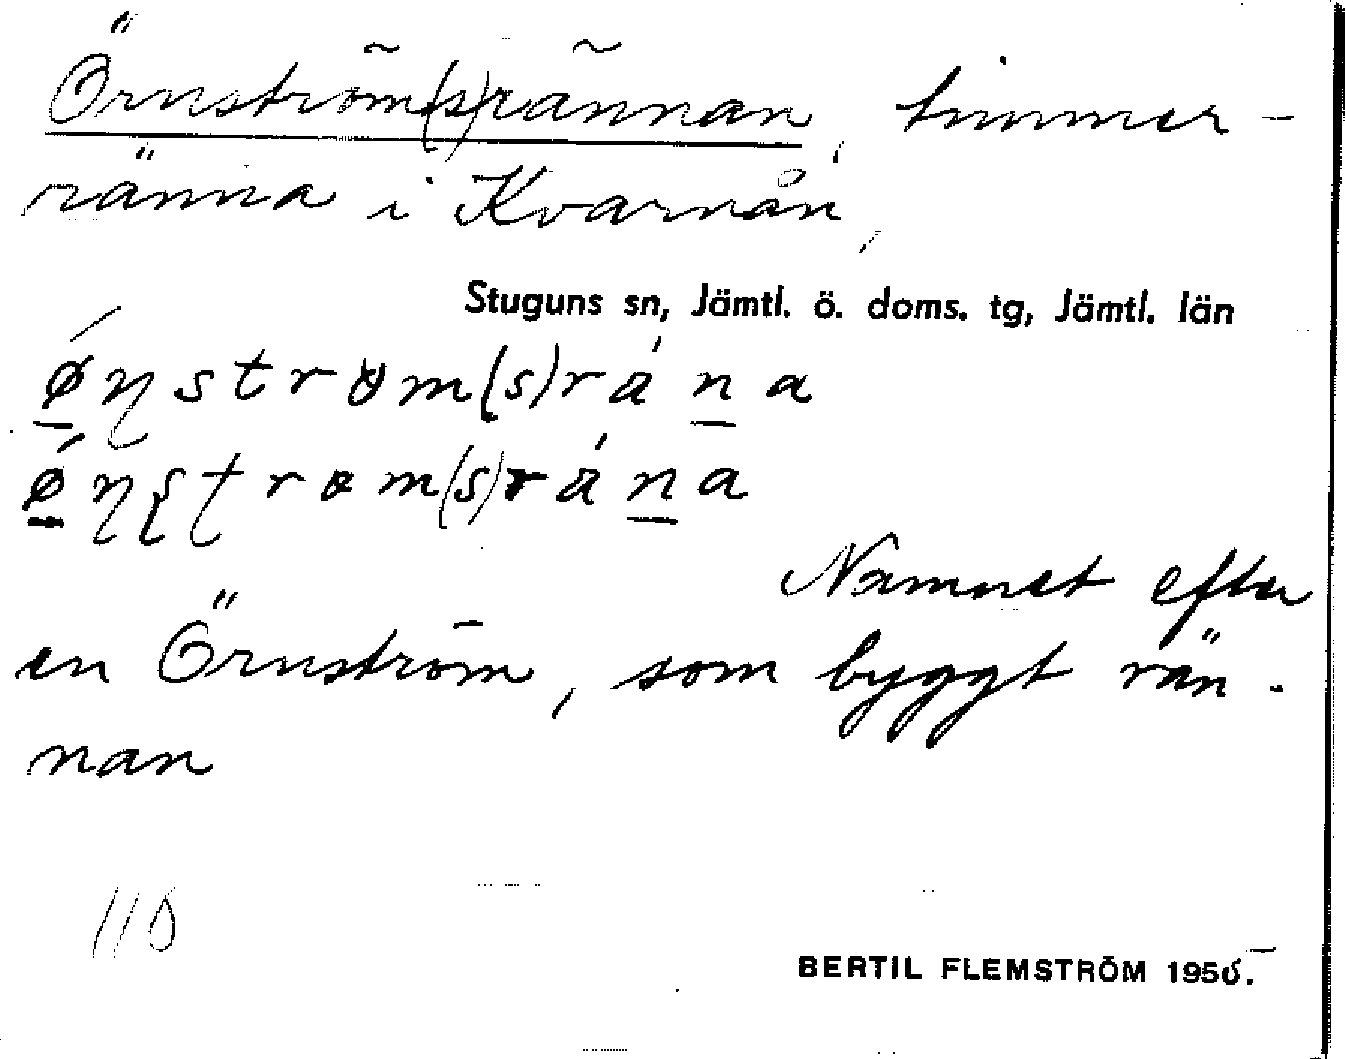 Örnström(s)rännan, timmer-
ränna i Kvarnån,
Stuguns sn, Jämtl. ö. doms. tg, Jämtl. län
ǿ̠ɳstrɵm(s)rá̈n̠a
ǿ̠ɳʂʈrɵm(s)rá̈n̠a
Namnet efter
en Örnström, som byggt rän-
nan
110
BERTIL FLEMSTRÖM